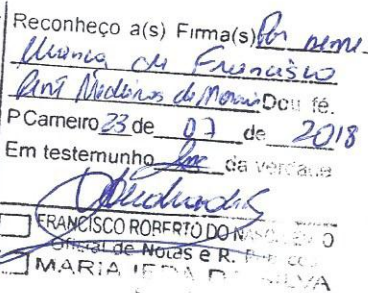 Reconheço a(s) Firma(s) Por seme-
lhança de Francisco
Medeiros de Morais Dou fé.
P Carneiro 23 de 07 de 2018
Em testemunho da verdade
FRANCISCO ROBERTO DO
Oficial de Notas e R.
MARIA DA SILVA